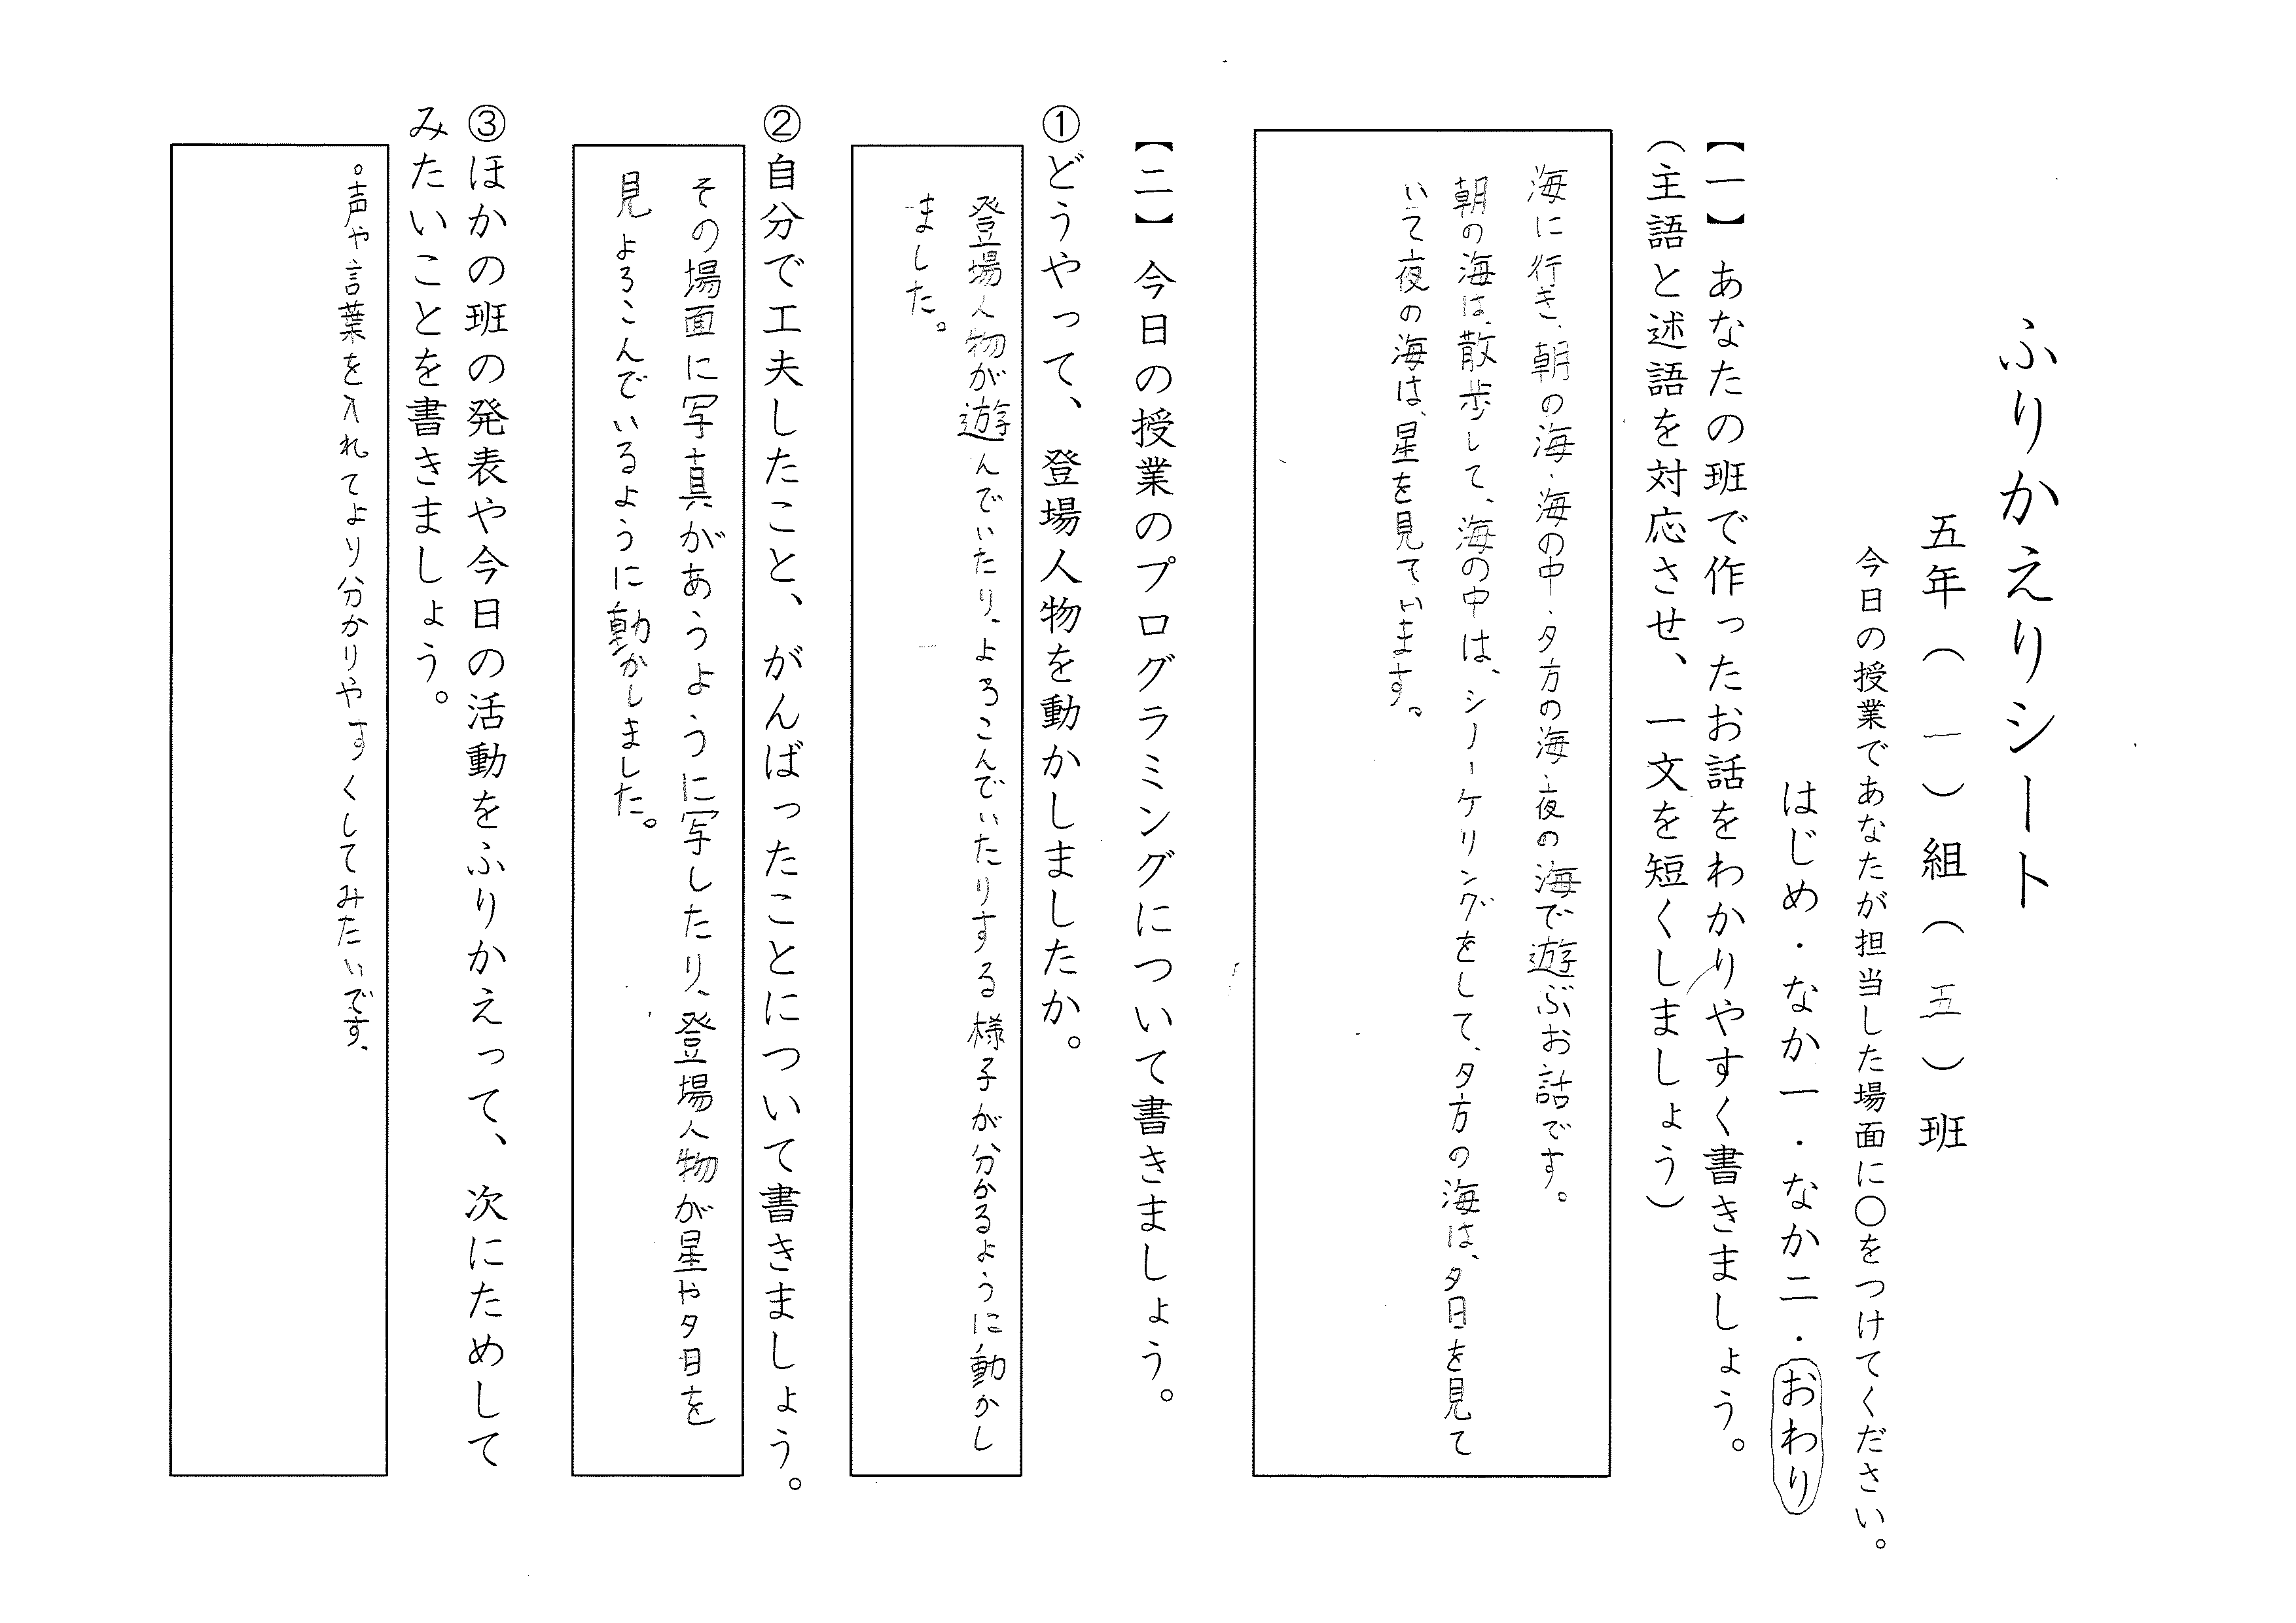 ふりかえりシート
五年（一）組（五）班
今日の授業であなたが担当した場面に〇をつけてください。
はじめ・なか一・なか二・おわり
【一】あなたの班で作ったお話をわかりやすく書きましょう。
（主語と述語を対応させ、一文を短くしましょう）
海に行き、朝の海・海の中・夕方の海・夜の海で遊ぶお話です。
朝の海は、散歩して、海の中は、シノーケリングをして、夕方の海は、夕日を見て
いて夜の海は、星を見ています。
【二】今日の授業のプログラミングについて書きましょう。
①どうやって、登場人物を動かしましたか。
登場人物が遊んでいたり、よろこんでいたりする様子が分かるように動かし
ました。
②自分で工夫したこと、がんばったことについて書きましょう。
その場面に写真があうように写したり、登場人物が星や夕日を
見よろこんでいるように動かしました。
③ほかの班の発表や今日の活動をふりかえって、次にためして
みたいことを書きましょう。
。声や言葉を入れてより分かりやすくしてみたいです、